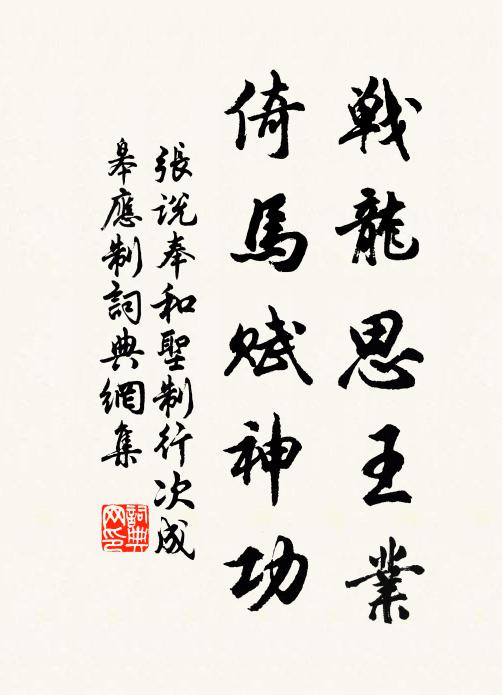 戦龍思王業
倚馬賦神功
張説奉和聖制行次成
皋應制詞典網集
詞典
网印